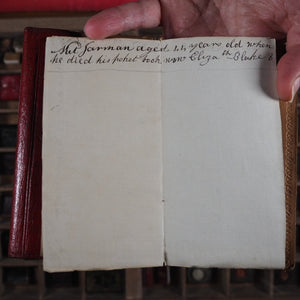 Mr Jarman aged 44 years old when
he died his poket book now Eliza th Blake s